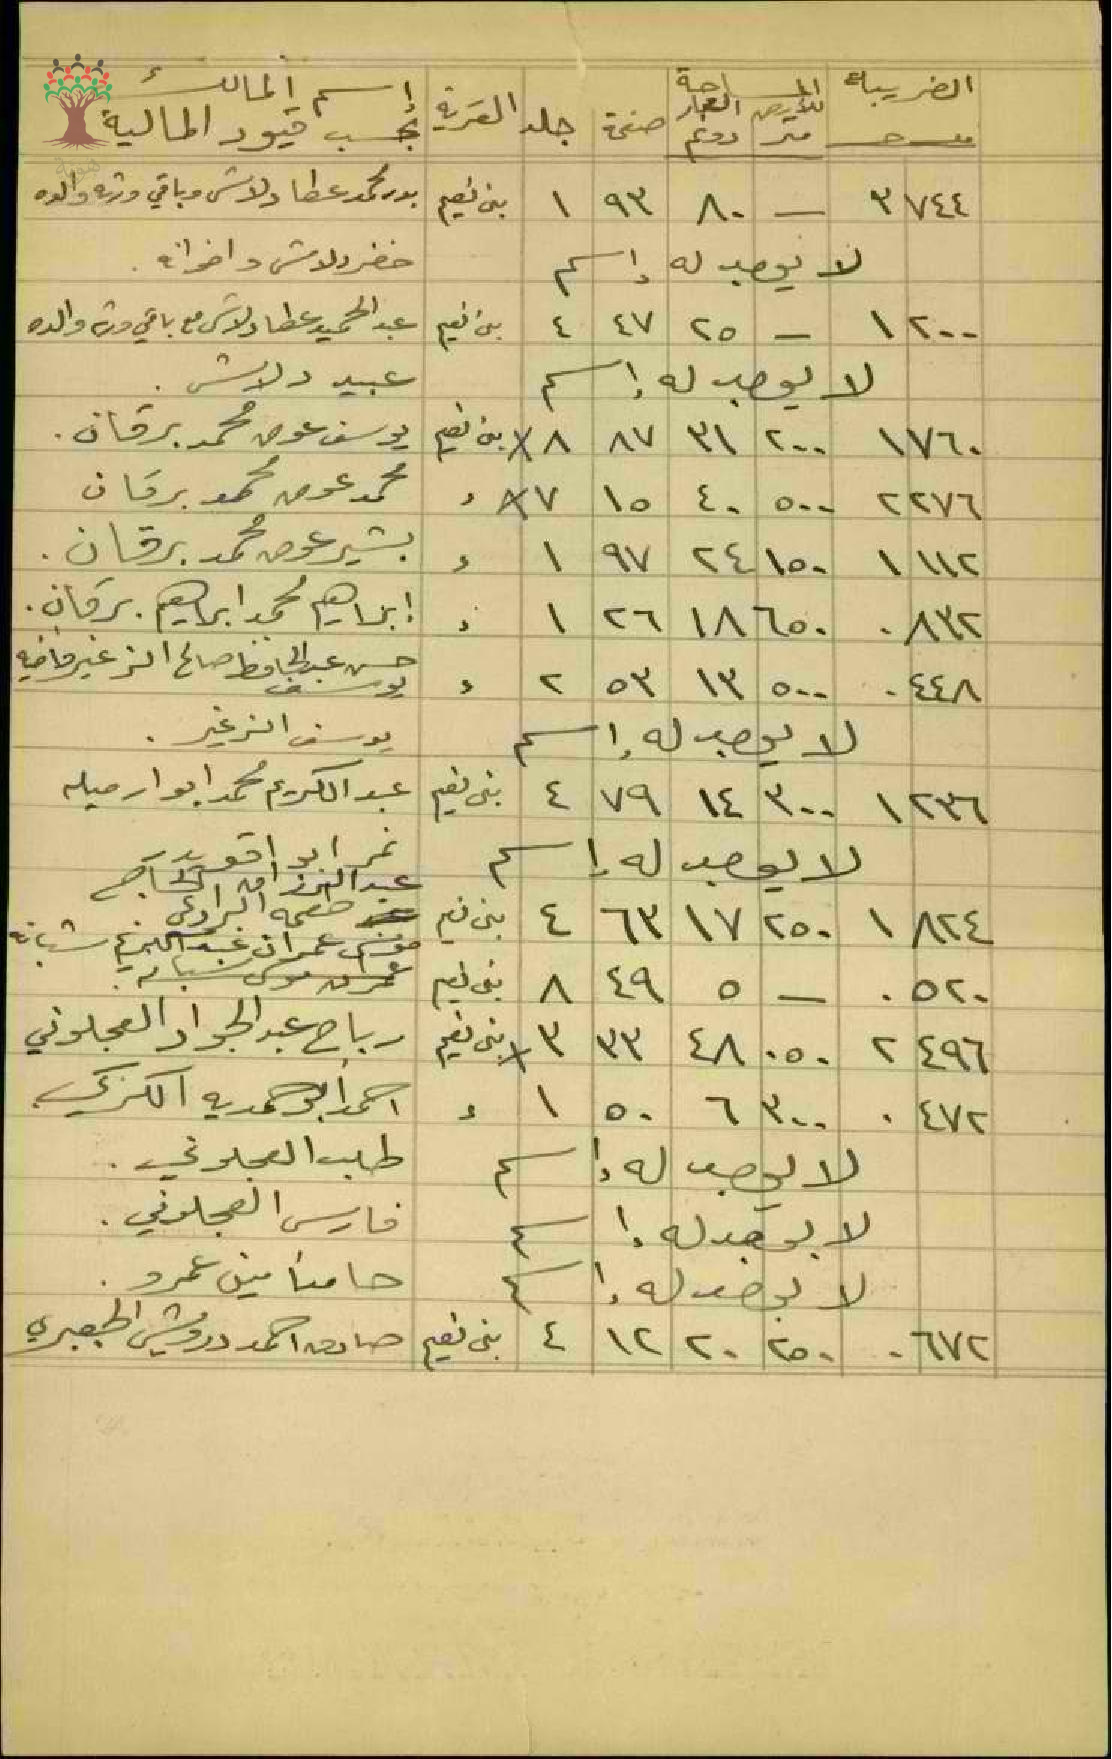 إسم المالك بحسب قيود المالية القرية جلد صفحة المساحة للأرض العقار دونم متر الضريبة
بدر محمد عطا دلاش وباقي ورثة والده بني نعيم ١ ٩٣ ٨٠ — ٣ ٧٤٤
خضر دلاش واخوانه . لا يوجد له إسم
عبد الحميد عطا دلاش مع باقي ورثة والده بني نعيم ٤ ٤٧ ٢٥ — ١ ٢٠٠
عبيد دلاش . لا يوجد له إسم
يوسف عوض محمد برقان . بني نعيم ٨ ٨٧ ٣١ ٢٠٠ ١ ٧٦٠
محمد عوض محمد برقان " ٧ ١٥ ٤٠ ٥٠٠ ٢ ٢٧٦
بشير عوض محمد برقان . " ١ ٩٧ ٢٤ ١٥٠ ١ ١١٢
ابراهيم محمد ابراهيم برقان . " ١ ٢٦ ١٨ ٦٥٠ ٠ ٨٣٢
حسن عبد الحافظ صالح الزغير يوسف " ٢ ٥٣ ١٣ ٥٠٠ ٠ ٤٤٨
يوسف الزغير . لا يوجد له إسم
عبد الكريم محمد ابو ارميله بني نعيم ٤ ٧٩ ١٤ ٣٠٠ ١ ٢٣٦
نمر ابو اقويدر لا يوجد له إسم
عبد الرزاق بني نعيم ٤ ٦٣ ١٧ ٢٥٠ ١ ٨٢٤
موسى عمران شبانه بني نعيم ٨ ٤٩ ٥ — ٠ ٥٢٠
رباح عبد الجواد العجلوني بني نعيم ٣ ٣٣ ٤٨ ٠٥٠ ٢ ٤٩٦
احمد ابو حمديه الكركي " ١ ٥٠ ٦ ٣٠٠ ٠ ٤٧٢
طلب العجلوني . لا يوجد له إسم
فارس العجلوني . لا يوجد له إسم
حامد امين عمرو . لا يوجد له إسم
صادق احمد درويش الجعبري بني نعيم ٤ ١٢ ٢٠ ٢٥٠ ٠ ٦٧٢